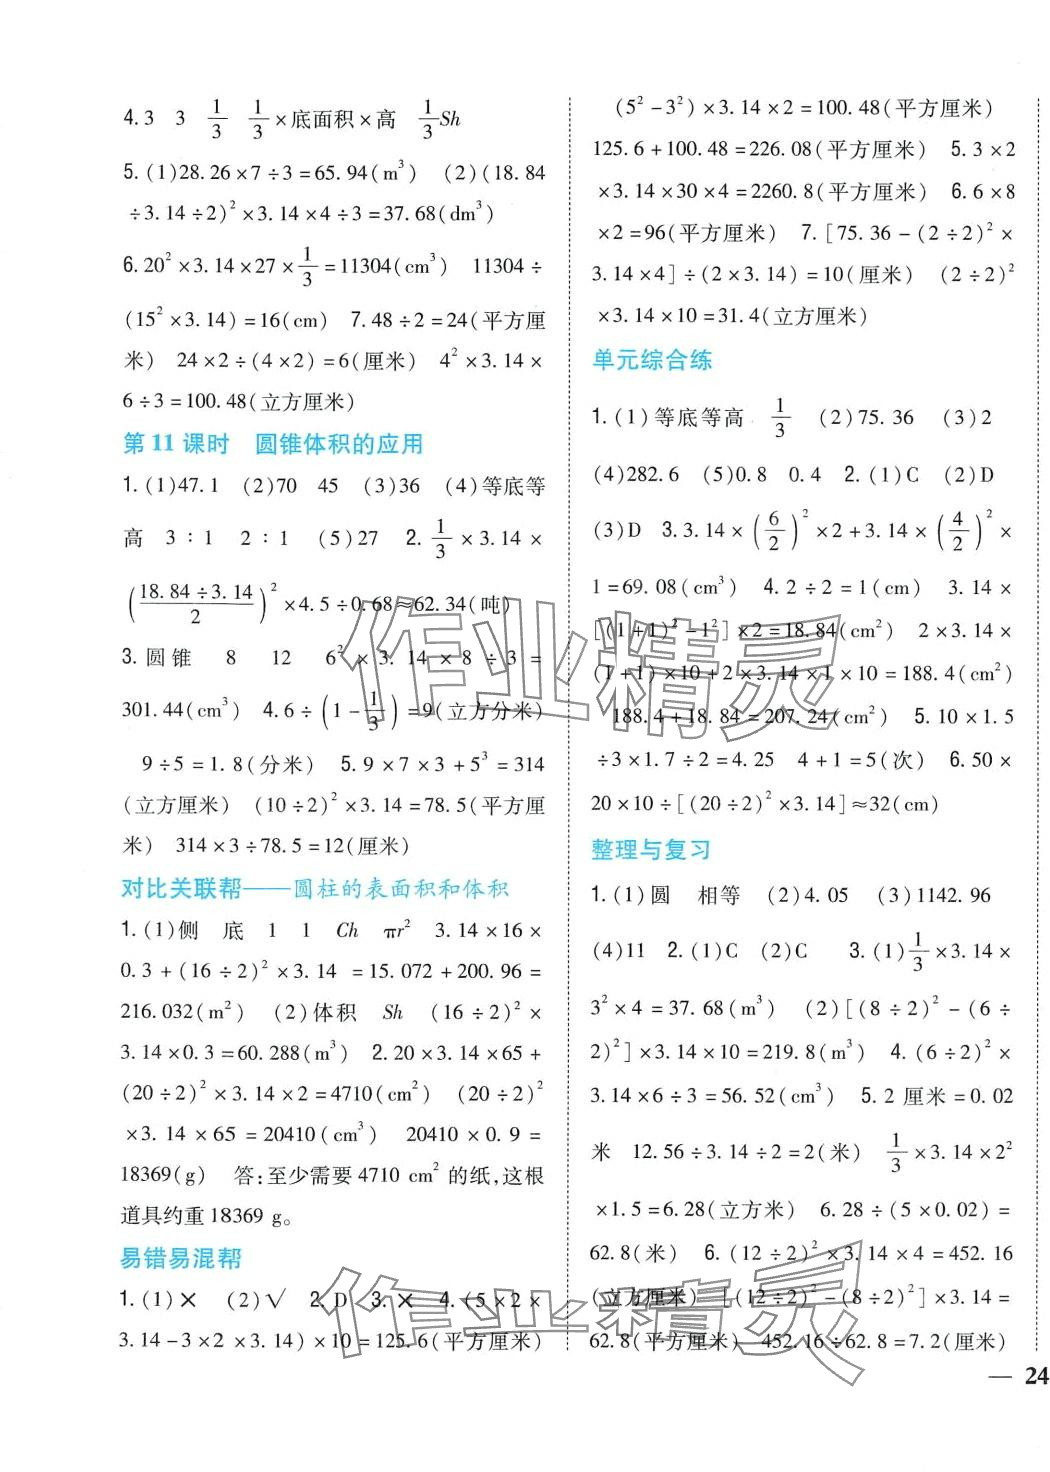 4. 3　3　1/3　1/3×底面积×高　1/3Sh
5. (1)28.26×7÷3=65.94(m³)　(2)(18.84
÷3.14÷2)²×3.14×4÷3=37.68(dm³)
6. 20²×3.14×27×1/3=11304(cm³)　11304÷
(15²×3.14)=16(cm)　7. 48÷2=24(平方厘
米)　24×2÷(4×2)=6(厘米)　4²×3.14×
6÷3=100.48(立方厘米)
第11课时　圆锥体积的应用
1. (1)47.1　(2)70　45　(3)36　(4)等底等
高　3∶1　2∶1　(5)27　2. 1/3×3.14×
((18.84÷3.14)/2)²×4.5÷0.68≈62.34(吨)
3. 圆锥　8　12　6²×3.14×8÷3=
301.44(cm³)　4. 6÷(1-1/3)=9(立方分米)
9÷5=1.8(分米)　5. 9×7×3+5³=314
(立方厘米)　(10÷2)²×3.14=78.5(平方厘
米)　314×3÷78.5=12(厘米)
对比关联帮——圆柱的表面积和体积
1. (1)侧　底　1　1　Ch　πr²　3.14×16×
0.3+(16÷2)²×3.14=15.072+200.96=
216.032(m²)　(2)体积　Sh　(16÷2)²×
3.14×0.3=60.288(m³)　2. 20×3.14×65+
(20÷2)²×3.14×2=4710(cm²)　(20÷2)²
×3.14×65=20410(cm³)　20410×0.9=
18369(g)　答:至少需要4710 cm²的纸,这根
道具约重18369 g。
易错易混帮
1. (1)×　(2)√　2. D　3. ×　4. (5×2×
3.14-3×2×3.14)×10=125.6(平方厘米)
(5²-3²)×3.14×2=100.48(平方厘米)
125.6+100.48=226.08(平方厘米)　5. 3×2
×3.14×30×4=2260.8(平方厘米)　6. 6×8
×2=96(平方厘米)　7. [75.36-(2÷2)²×
3.14×4]÷(2×3.14)=10(厘米)　(2÷2)²
×3.14×10=31.4(立方厘米)
单元综合练
1. (1)等底等高　1/3　(2)75.36　(3)2
(4)282.6　(5)0.8　0.4　2. (1)C　(2)D
(3)D　3. 3.14×(6/2)²×2+3.14×(4/2)²×
1=69.08(cm³)　4. 2÷2=1(cm)　3.14×
[(1+1)²-1²]×2=18.84(cm²)　2×3.14×
(1+1)×10+2×3.14×1×10=188.4(cm²)
188.4+18.84=207.24(cm²)　5. 10×1.5
÷3×1.7÷2=4.25　4+1=5(次)　6. 50×
20×10÷[(20÷2)²×3.14]≈32(cm)
整理与复习
1. (1)圆　相等　(2)4.05　(3)1142.96
(4)11　2. (1)C　(2)C　3. (1)1/3×3.14×
3²×4=37.68(m³)　(2)[(8÷2)²-(6÷
2)²]×3.14×10=219.8(m³)　4. (6÷2)²×
3.14×6÷3=56.52(cm³)　5. 2厘米=0.02
米　12.56÷3.14÷2=2(米)　1/3×3.14×2²
×1.5=6.28(立方米)　6.28÷(5×0.02)=
62.8(米)　6. (12÷2)²×3.14×4=452.16
(立方厘米)　[(12÷2)²-(8÷2)²]×3.14=
62.8(平方厘米)　452.16÷62.8=7.2(厘米)
— 24
作业精灵
作业精灵